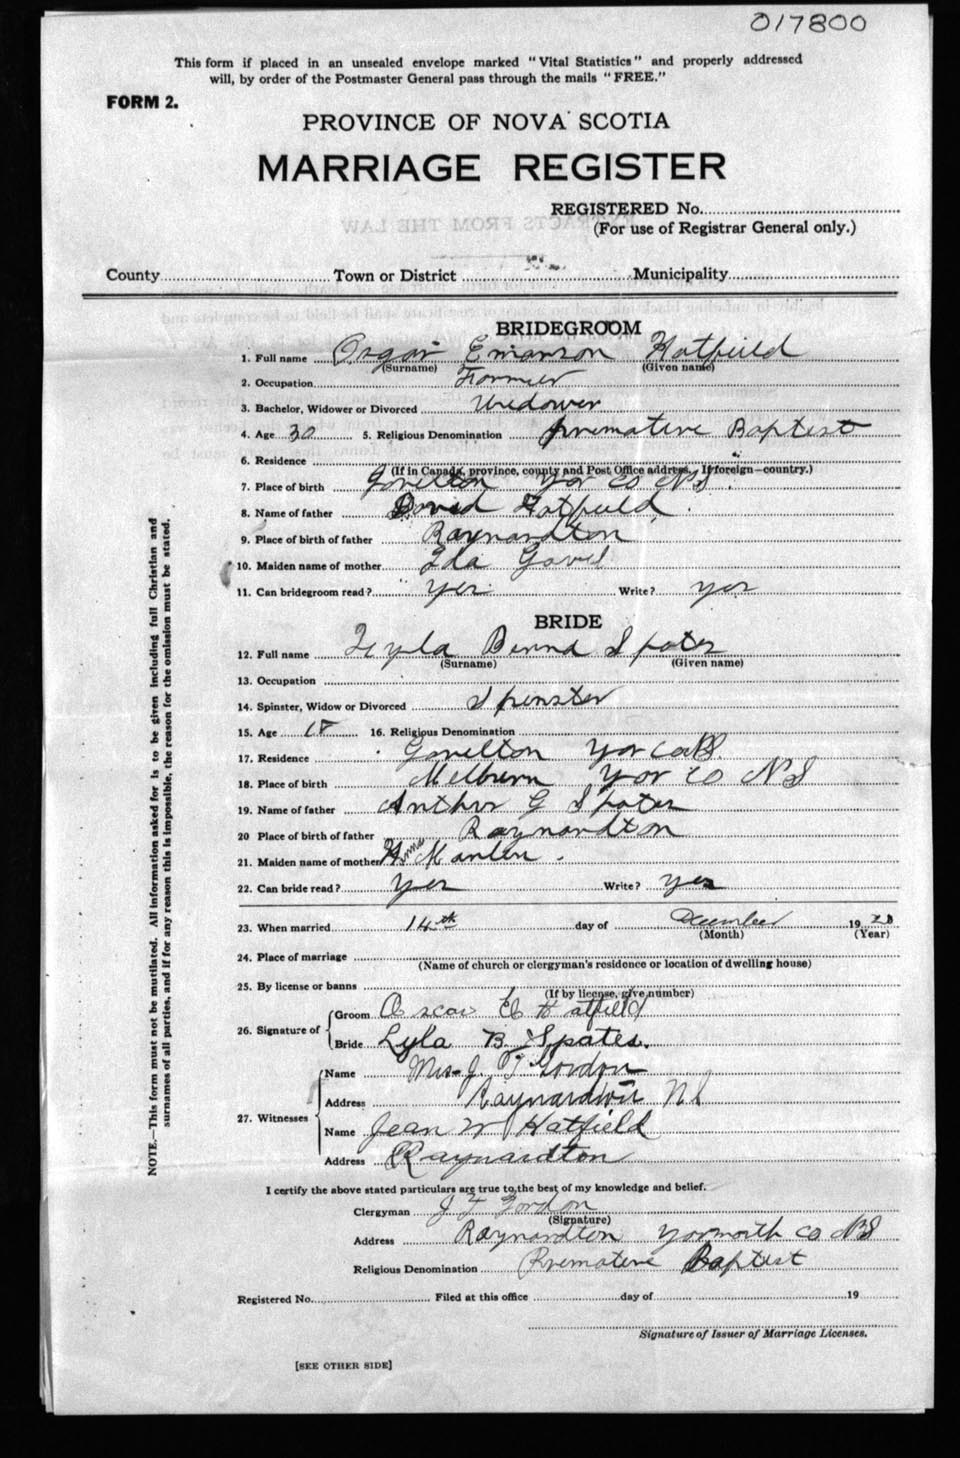 017800
This form if placed in an unsealed envelope marked "Vital Statistics" and properly addressed
will, by order of the Postmaster General pass through the mails "FREE."
FORM 2.
PROVINCE OF NOVA SCOTIA
MARRIAGE REGISTER
REGISTERED No.
(For use of Registrar General only.)
EXTRACTS FROM THE LAW
County Town or District Municipality
BRIDEGROOM
1. Full name Osgar Emarson Hatfield
(Surname) (Given name)
2. Occupation Farmer
3. Bachelor, Widower or Divorced Widower
4. Age 30 5. Religious Denomination Premative Baptest
6. Residence
(If in Canada, province, county and Post Office address. If foreign—country.)
7. Place of birth Gavelton Yor Co NS.
8. Name of father David Hatfield
9. Place of birth of father Raynardton
10. Maiden name of mother Ida Gavel
11. Can bridegroom read? yes Write? yes
BRIDE
12. Full name Leyla Spates
(Surname) (Given name)
13. Occupation
14. Spinster, Widow or Divorced Spenster
15. Age 18 16. Religious Denomination
17. Residence Gavelton Yor Co NS.
18. Place of birth Melburn Yor Co NS
19. Name of father Anthur G Spates
20 Place of birth of father Raynardton
21. Maiden name of mother
22. Can bride read? yes Write? yes
23. When married 14th day of December 1928
(Month) (Year)
24. Place of marriage
(Name of church or clergyman's residence or location of dwelling house)
25. By license or banns
(If by license, give number)
26. Signature of
Groom Oscar E Hatfield
Bride Lyla B. Spates.
27. Witnesses
Name Mrs J. F Gordon
Address Raynardton NS
Name Jean W Hatfield
Address Raynardton
I certify the above stated particulars are true to the best of my knowledge and belief.
Clergyman J F Gordon
(Signature)
Address Raynardton Yarmouth Co NS
Religious Denomination Premative Baptest
Registered No. Filed at this office day of 19
Signature of Issuer of Marriage Licenses.
[SEE OTHER SIDE]
NOTE.—This form must not be mutilated. All information asked for is to be given including full Christian and
surnames of all parties, and if for any reason this is impossible, the reason for the omission must be stated.